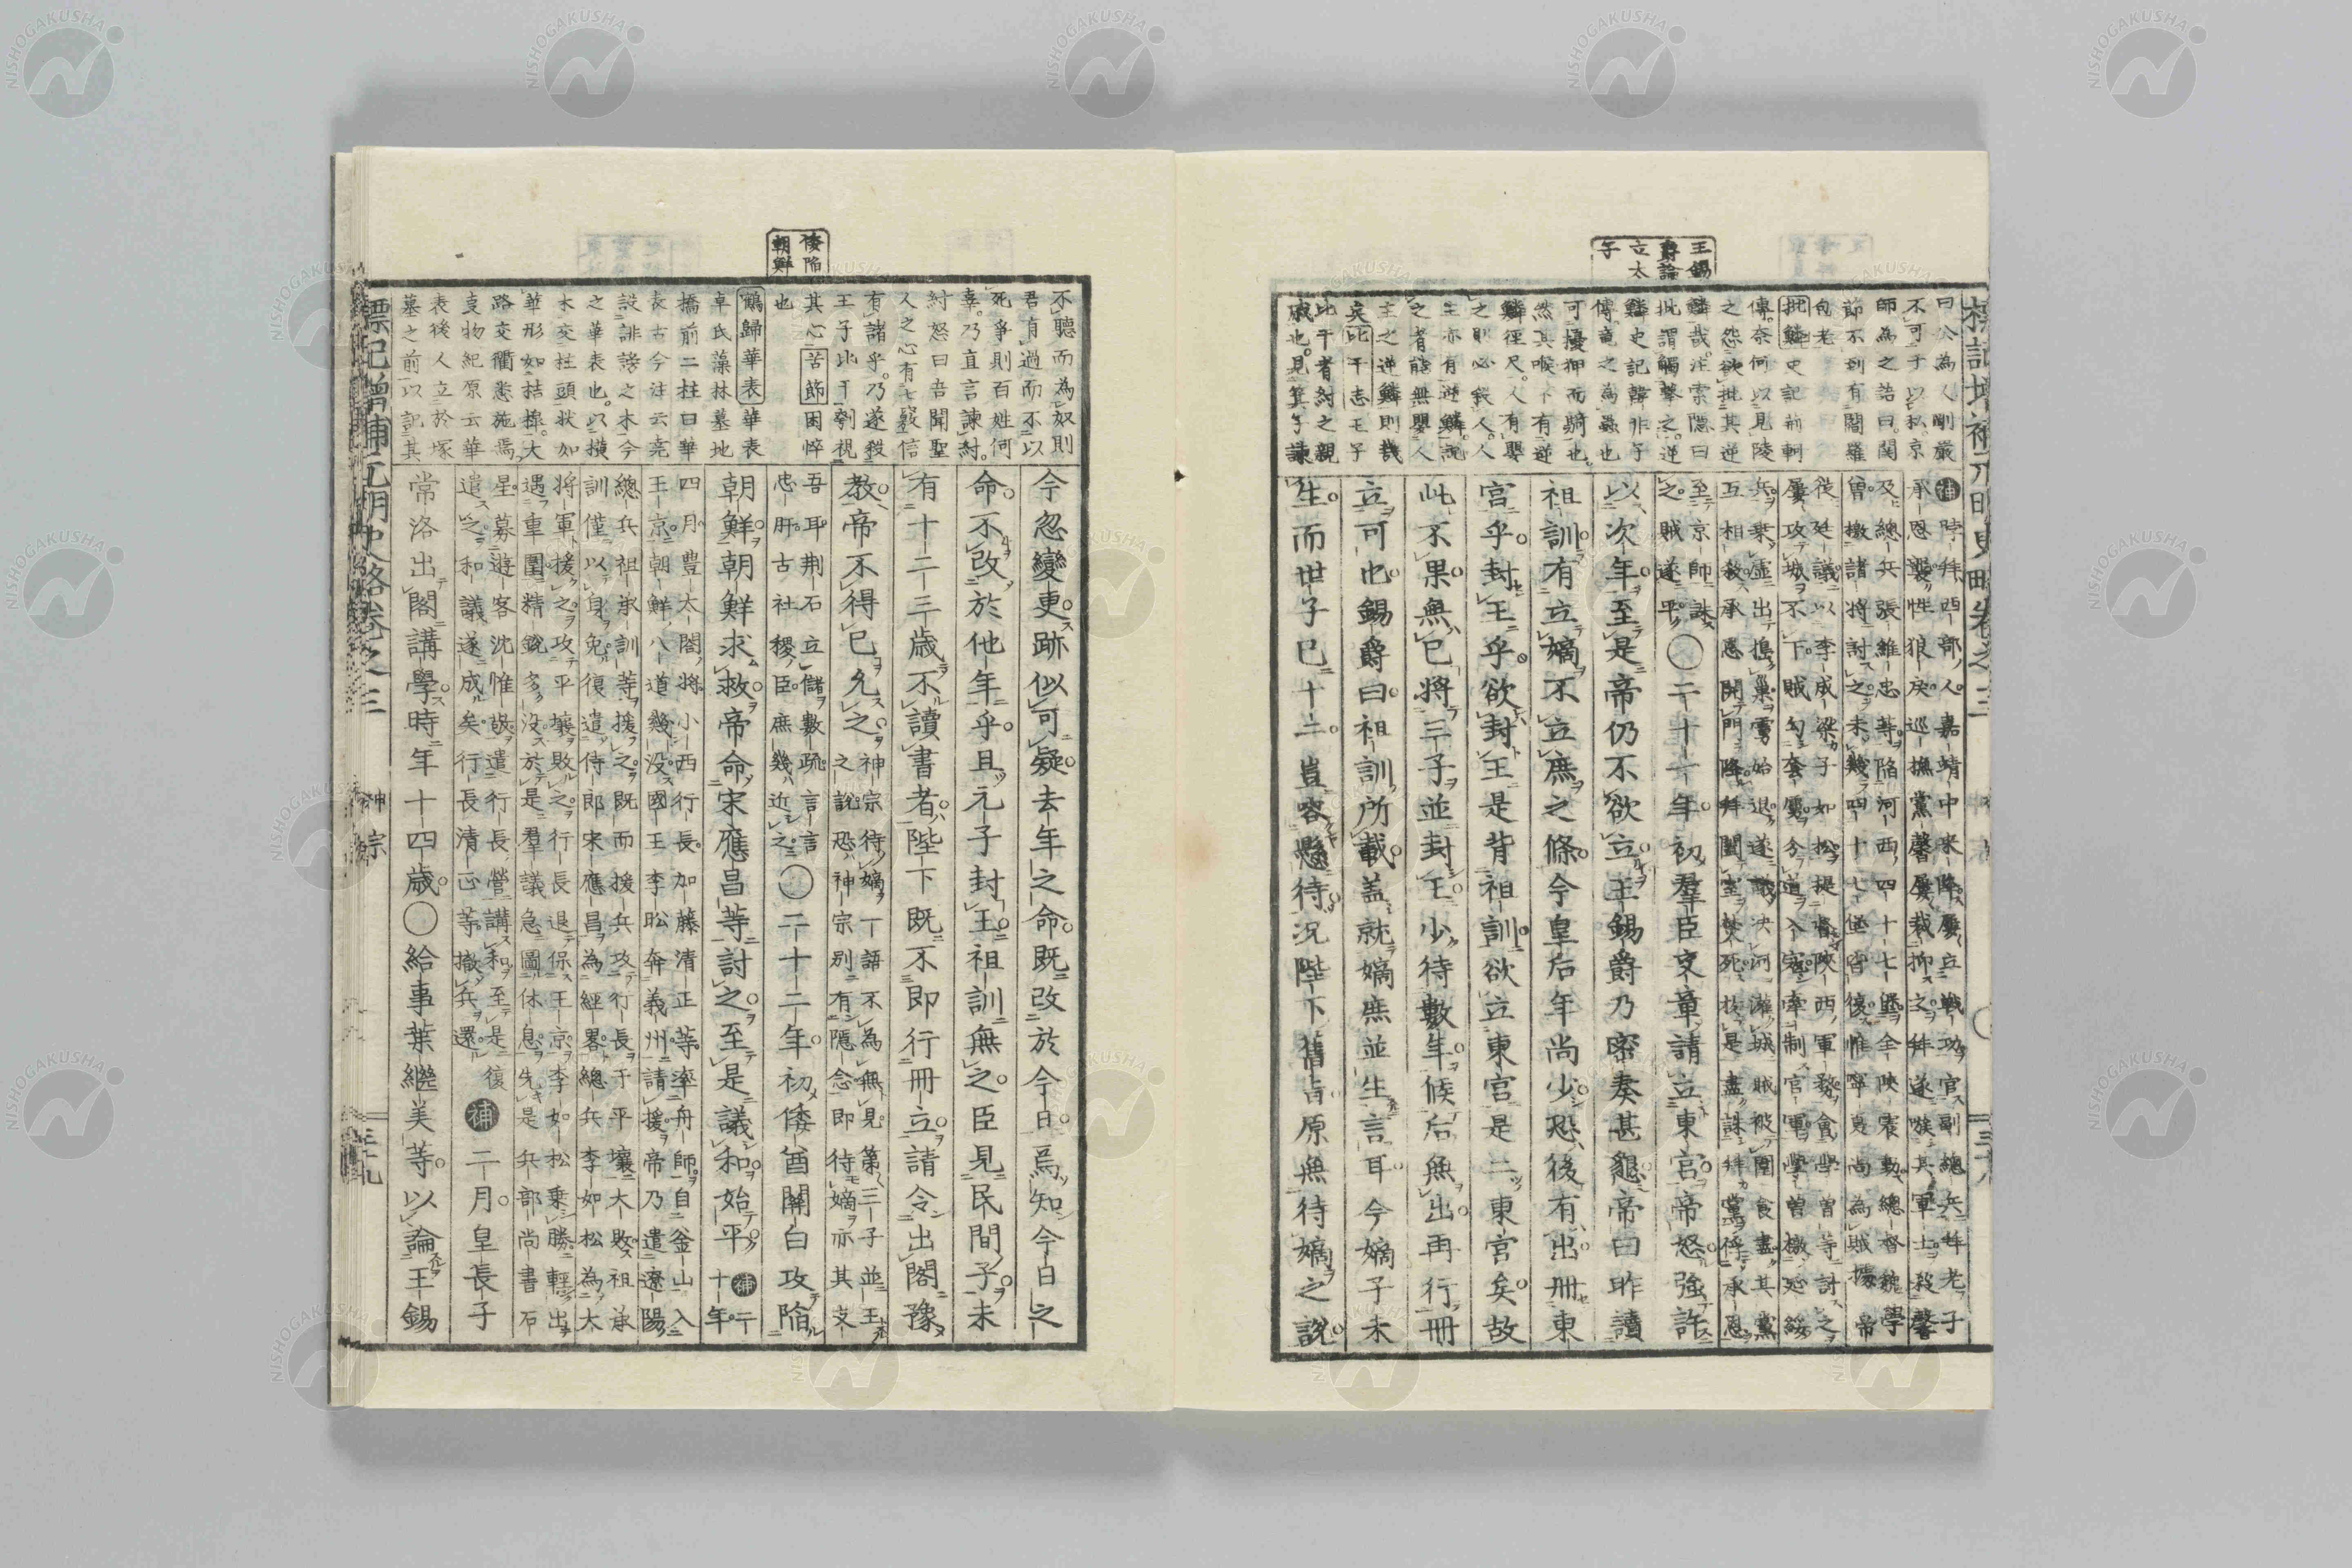 王錫
爵論
立太
子
曰公為人剛嚴
不可于以私京
師為之語曰關
節不到有閻羅
包老
批鱗史記荊軻
傳奈何以見陵
之怨欲批其逆
鱗哉注索隱曰
批謂觸擊之逆
鱗史記韓非子
傳竜之為蟲也
可擾狎而騎也
然其喉下有逆
鱗徑尺人有嬰
之則必殺人人
主亦有逆鱗說
之者能無嬰人
主之逆鱗則幾
矣比干志王子
比干者紂之親
戚也見箕子諫
補哱拜西部人嘉靖中來降屢立戰功官副總兵拜老子
承恩襲性狼戾巡撫黨馨屢裁抑之拜遂嗾其軍士殺馨
及總兵張維忠等陷河西四十七堡全陝震動總督魏學
曾檄諸將討之未幾四十七堡皆復惟寧夏尚為賊據帝
從廷議以李成梁子如松提督陝西軍務會學曾等討之
屢攻城不下賊勾套虜分道入寇牽制官軍學曾檄延綏
兵乘虛出搗巢虜始退遂議決河灌城賊被圍食盡其黨
互相殺承恩開門降拜闔室焚死於是盡誅拜黨俘承恩
至京師誅
之賊遂平〇二十一年初羣臣交章請立東宮帝怒強許
以次年至是帝仍不欲立王錫爵乃密奏甚懇帝曰昨讀
祖訓有立嫡不立庶之條今皇后年尚少恐後有出冊東
宮乎封王乎欲封王是背祖訓欲立東宮是二東宮矣故
此不果無已將三子並封王少待數年候后無出再行冊
立可也錫爵曰祖訓所載蓋就嫡庶並生言耳今嫡子未
生而世子已十二豈容懸待況陛下舊旨原無待嫡之說
倭陷
朝鮮
不聽而為奴則
君有過而不以
死爭則百姓何
辜乃直言諫紂
紂怒曰吾聞聖
人之心有七竅信
有諸乎乃遂殺
王子比干刳視
其心苦節困悴
也
鶴歸華表華表
卓氏藻林墓地
橋前二柱曰華
表古今注云堯
設誹謗之木今
之華表也以橫
木交柱頭狀如
華形如桔槹大
路交衢悉施焉
支物紀原云華
表後人立於塚
墓之前以記其
今忽變更跡似可疑去年之命既改於今日焉知今日之
命不改於他年乎且元子封王祖訓無之臣見民間子未
有十二三歲不讀書者陛下既不即行冊立請令出閣豫
教帝不得已允之神宗待嫡一語不為無見第三子並王
之說恐神宗別有隱念即待嫡亦其支
吾耳荆石立儲數疏言言
忠肝古社稷臣庶幾近之〇二十二年初倭酋關白攻陷
朝鮮朝鮮求救帝命宋應昌等討之至是議和始平補二
十年
四月豐太閤將小西行長加藤清正等率舟師自釜山入
王京朝鮮八道幾沒國王李昖奔義州請援帝乃遣遼陽
總兵祖承訓等援之既而援兵攻行長于平壤大敗祖承
訓僅以身免復遣侍郎宋應昌為經畧總兵李如松為大
將軍援之攻平壤敗之行長退保王京李如松乘勝輕出
遇車圍精銳多沒於是羣議急圖休息先是兵部尚書石
星募遊客沈惟敬遣行長營講和至是復
遣之和議遂成矣行長清正等撤兵還補二月皇長子
常洛出閣講學時年十四歲〇給事葉繼美等以論王錫
標記增補元明史略卷之三
神宗
三十九